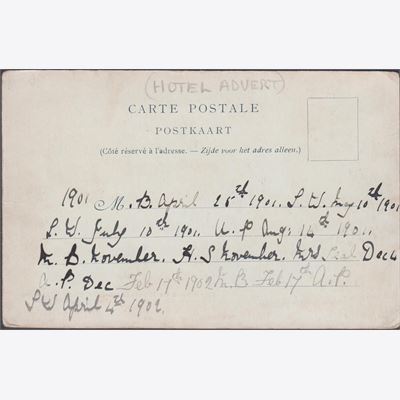 (HOTEL ADVERT)
CARTE POSTALE
POSTKAART
(Côté réservé à l'adresse. — Zijde voor het adres alleen.)
1901 M. B. April 25th 1901. S. W. May 10th 1901
S. W. July 10th 1901. A. P Aug: 14th 1901.
M. B. November. H. S November. Mrs Dec 4
A. P. Dec Feb 17th 1902 M. B Feb 17th A. P.
S W April 4th 1902.